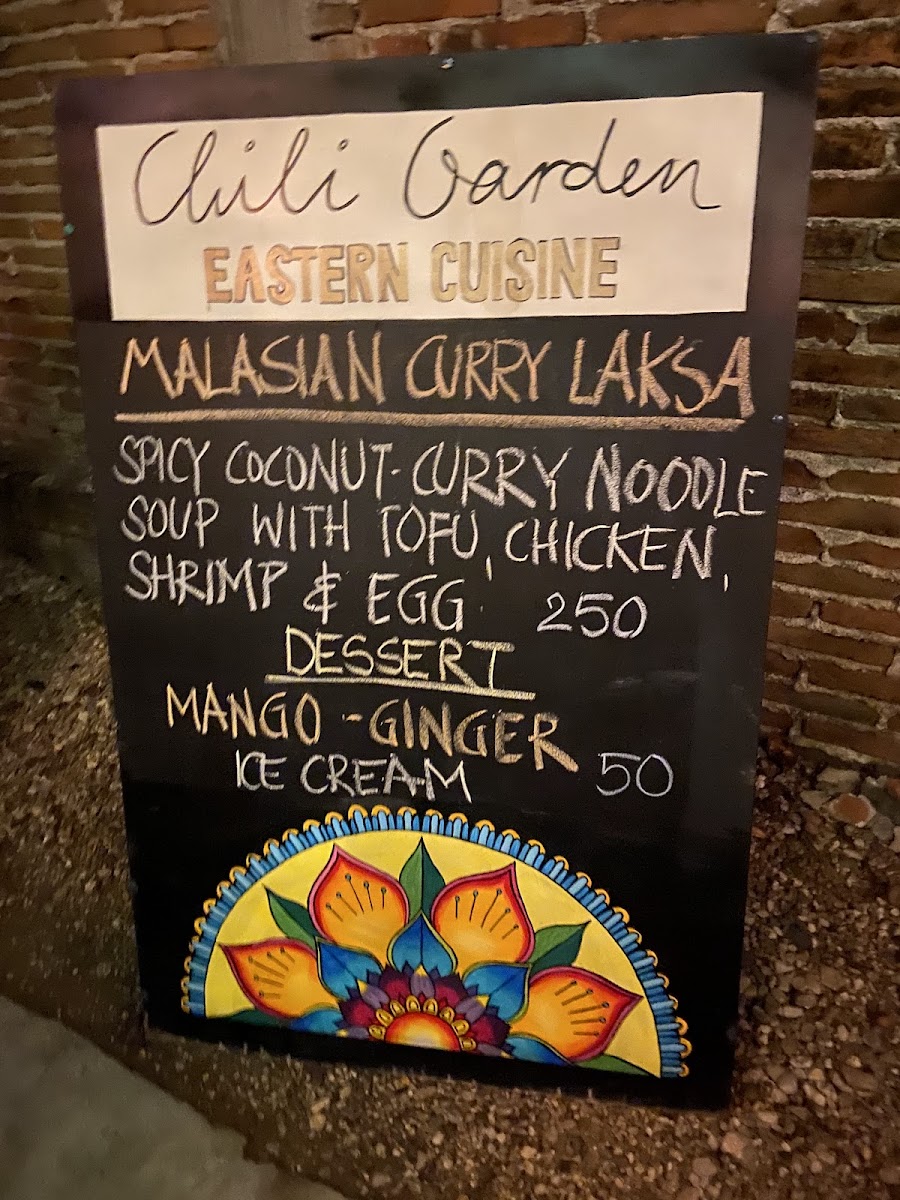 Chili Garden
EASTERN CUISINE
MALASIAN CURRY LAKSA
SPICY COCONUT-CURRY NOODLE
SOUP WITH TOFU, CHICKEN,
SHRIMP & EGG 250
DESSERT
MANGO-GINGER
ICE CREAM 50